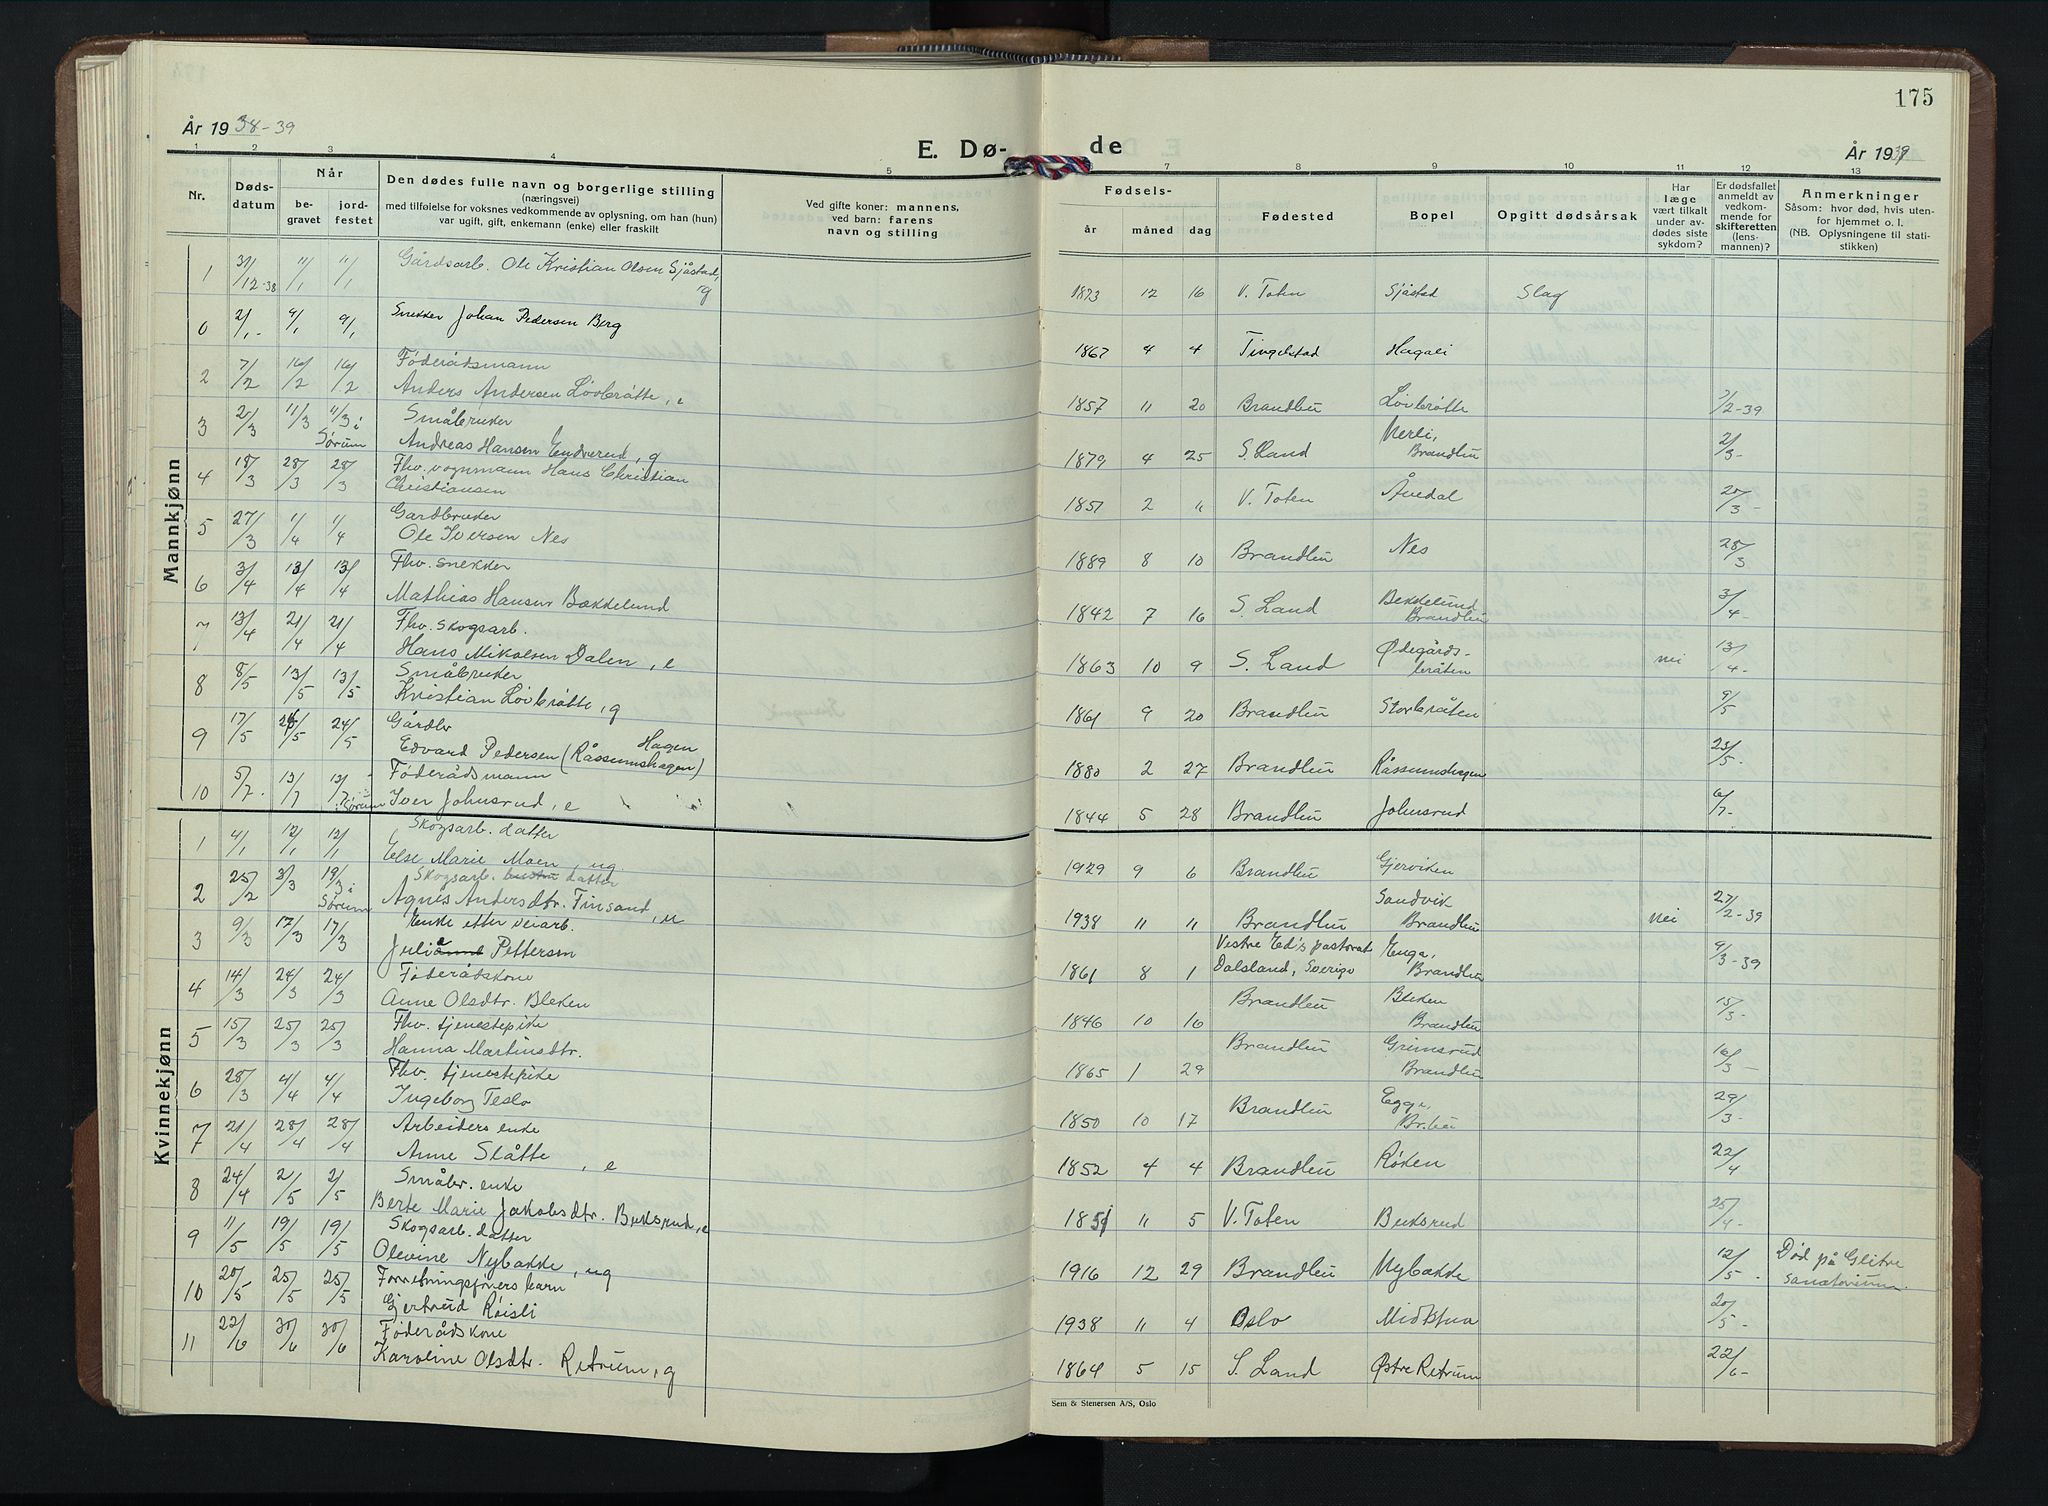 175
År 1938-39
E. Dø-
de
År 1939
1 2 3 4 5 7 8 9 10 11 12 13
Nr.
Døds-
datum
Når
be-
gravet
jord-
festet
Den dødes fulle navn og borgerlige stilling
(næringsvei)
med tilføielse for voksnes vedkommende av oplysning, om han (hun)
var ugift, gift, enkemann (enke) eller fraskilt
Ved gifte koner: mannens,
ved barn: farens
navn og stilling
Fødsels-
år måned dag
Fødested
Bopel
Opgitt dødsårsak
Har
læge
vært tilkalt
under av-
dødes siste
sykdom?
Er dødsfallet
anmeldt av
vedkom-
mende for
skifteretten
(lens-
mannen)?
Anmerkninger
Såsom: hvor død, hvis uten-
for hjemmet o. l.
(NB. Oplysningene til stati-
stikken)
Mannkjønn
1 31/12-38 11/1 11/1 Gårdsarb. Ole Kristian Olsen Sjåstad, g 1873 12 16 V. Toten Sjåstad Slag
0 2/1- 9/1 9/1 Snekker Johan Pedersen Berg 1867 4 4 Tingelstad Hagali
2 7/2 16/2 16/2 Føderådsmann
Anders Andersen Løvbråtte, e 1857 11 20 Brandbu Løvbråtte 7/2-39
3 2/3 11/3 11/3 i Sørum Småbruker
Andreas Hansen Endrerud, g 1879 4 25 S. Land Nerli, Brandbu 2/3-
4 18/3 28/3 28/3 Fhv. vognmann Hans Christian
Christiansen 1857 2 11 V. Toten Åvedal 20/3-
5 27/3 1/4 1/4 Gardbruker
Ole Iversen Nes 1889 8 10 Brandbu Nes 28/3
6 3/4 13/4 13/4 Fhv. snekker
Mathias Hansen Bækkelund 1842 7 16 S. Land Bekkelund Brandbu 3/4-
7 13/4 21/4 21/4 Fhv. skogsarb.
Hans Mikalsen Dalen, e 1863 10 9 S. Land Ødegårds-bråten nei 13/4-
8 8/5 13/5 13/5 Småbruker
Kristian Løvbråtte, g 1861 9 20 Brandbu Storbråten 9/5
9 17/5 24/5 24/5 Gårdbr
Edvard Pedersen Hagen (Råssumshagen) 1880 2 27 Brandbu Råssumshagen 23/5-
10 5/7 13/7 13/7 Sørum Føderådsmann
Iver Johnsrud, e 1844 5 28 Brandbu Johnsrud 6/7-
Kvinnekjønn
1 4/1 12/1 12/1 Skogsarb. datter
Else Marie Moen, ug 1929 9 6 Brandbu Gjerviken
2 25/2 3/3 19/3 i Sørum Skogsarb. hustru datter
Agnes Andersdtr. Finsand, u 1938 11 11 Brandbu Sandvik Brandbu nei 27/2-39
3 9/3 17/3 17/3 Enke etter veiarb.
Julia Pettersen 1861 8 1 Vestre Ed's pastorat Dalsland, Sverige Enga, Brandbu 9/3-39
4 14/3 24/3 24/3 Føderådskone
Anne Olsdtr. Bleken 1846 10 16 Brandbu Bleken Brandbu 15/3-
5 15/3 25/3 25/3 Fhv. tjenestepike
Hanna Martinsdtr. 1865 1 29 Brandbu Grimsrud Brandbu 16/3-
6 28/3 4/4 4/4 Fhv. tjenestepike
Ingeborg Teslo 1850 10 17 Brandbu Egge, Br.bu 29/3-
7 21/4 28/4 28/4 Arbeiders enke
Anne Slåtte, e 1852 4 4 Brandbu Røken 22/4
8 24/4 2/5 2/5 Småbr. enke
Berte Marie Jakobsdtr. Buksrud, e 1851 11 5 V. Toten Buksrud 25/4-
9 11/5 19/5 19/5 Skogsarb. datter
Olevine Nybakke, ug 1916 12 29 Brandbu Nybakke 12/5. Død på Glitre sanatorium.
10 20/5 25/5 25/5 Forretningsførers barn
Gjertrud Røisli 1938 11 4 Oslo Midtstua 20/5-
11 22/6 30/6 30/6 Føderådskone
Karoline Olsdtr. Retrum, g 1864 5 15 S. Land Østre Retrum 22/6-
Sem & Stenersen A/S, Oslo